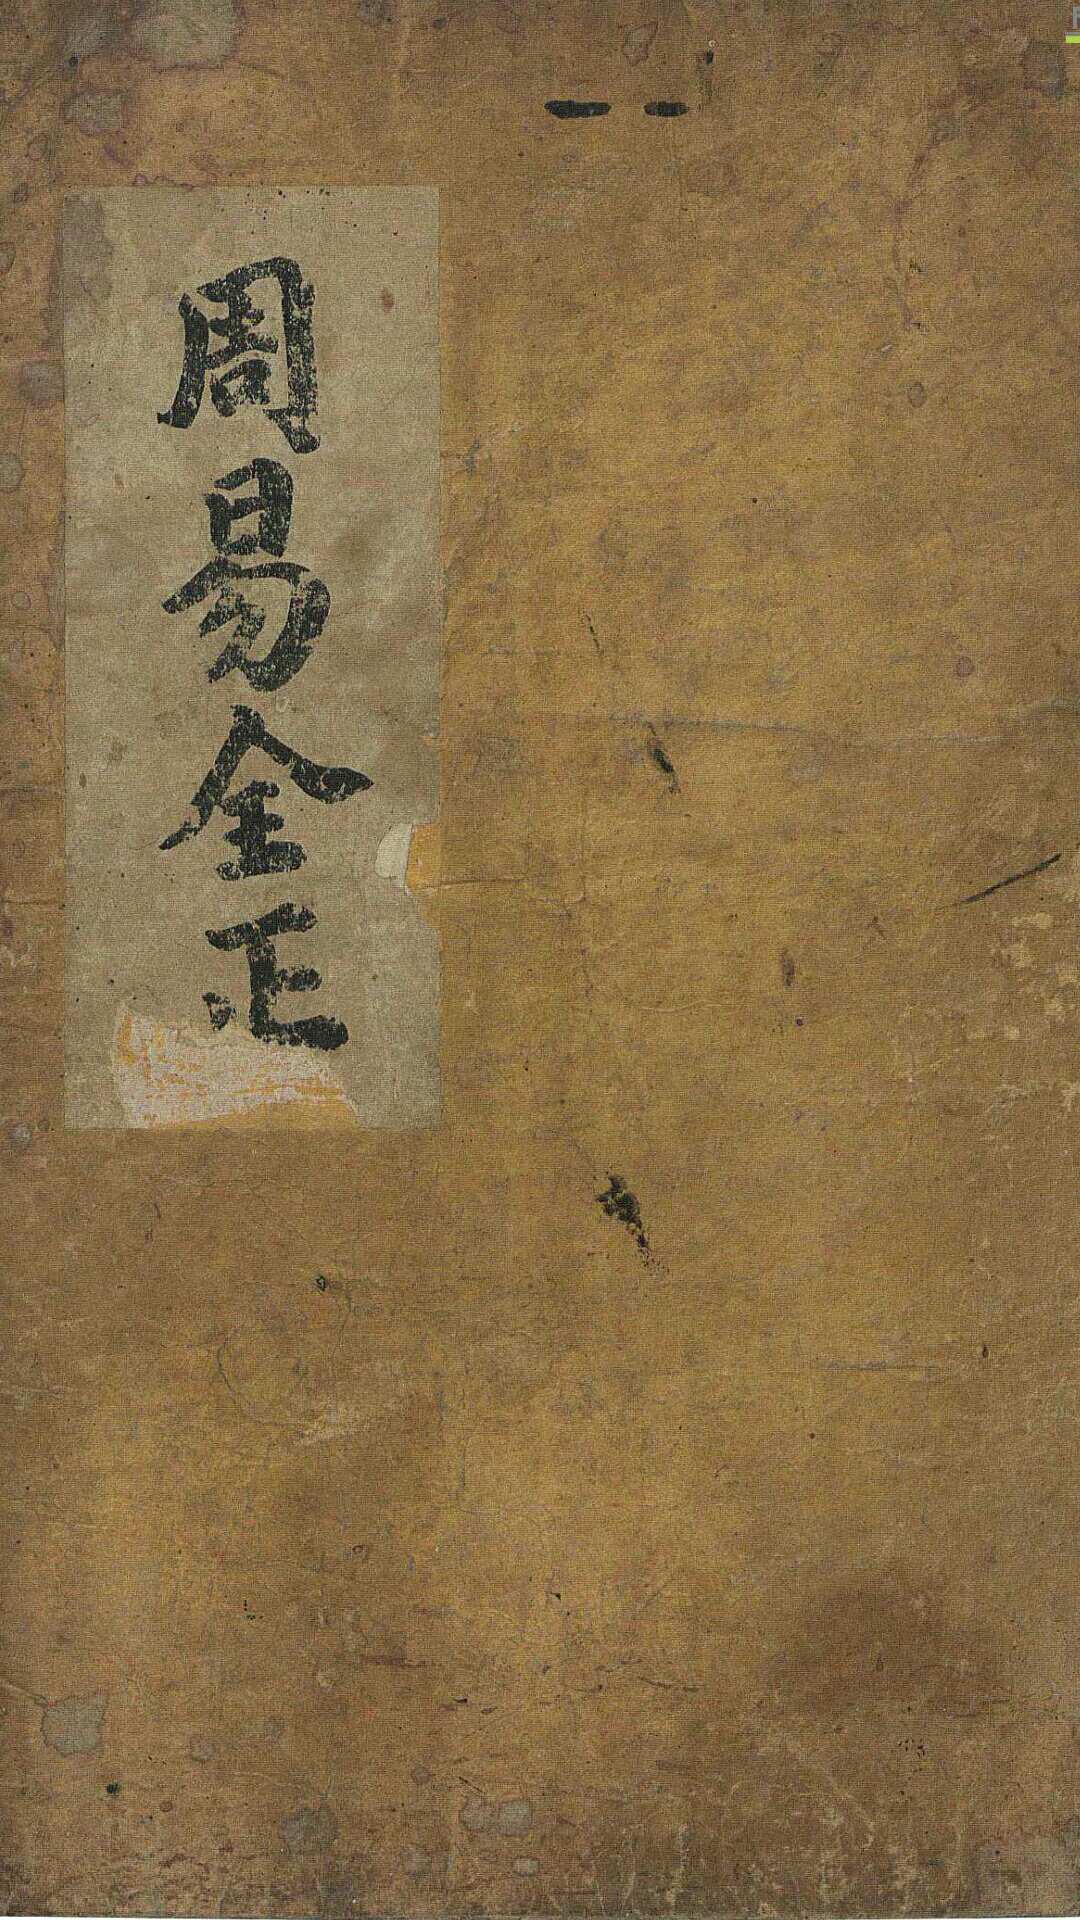 周易全正